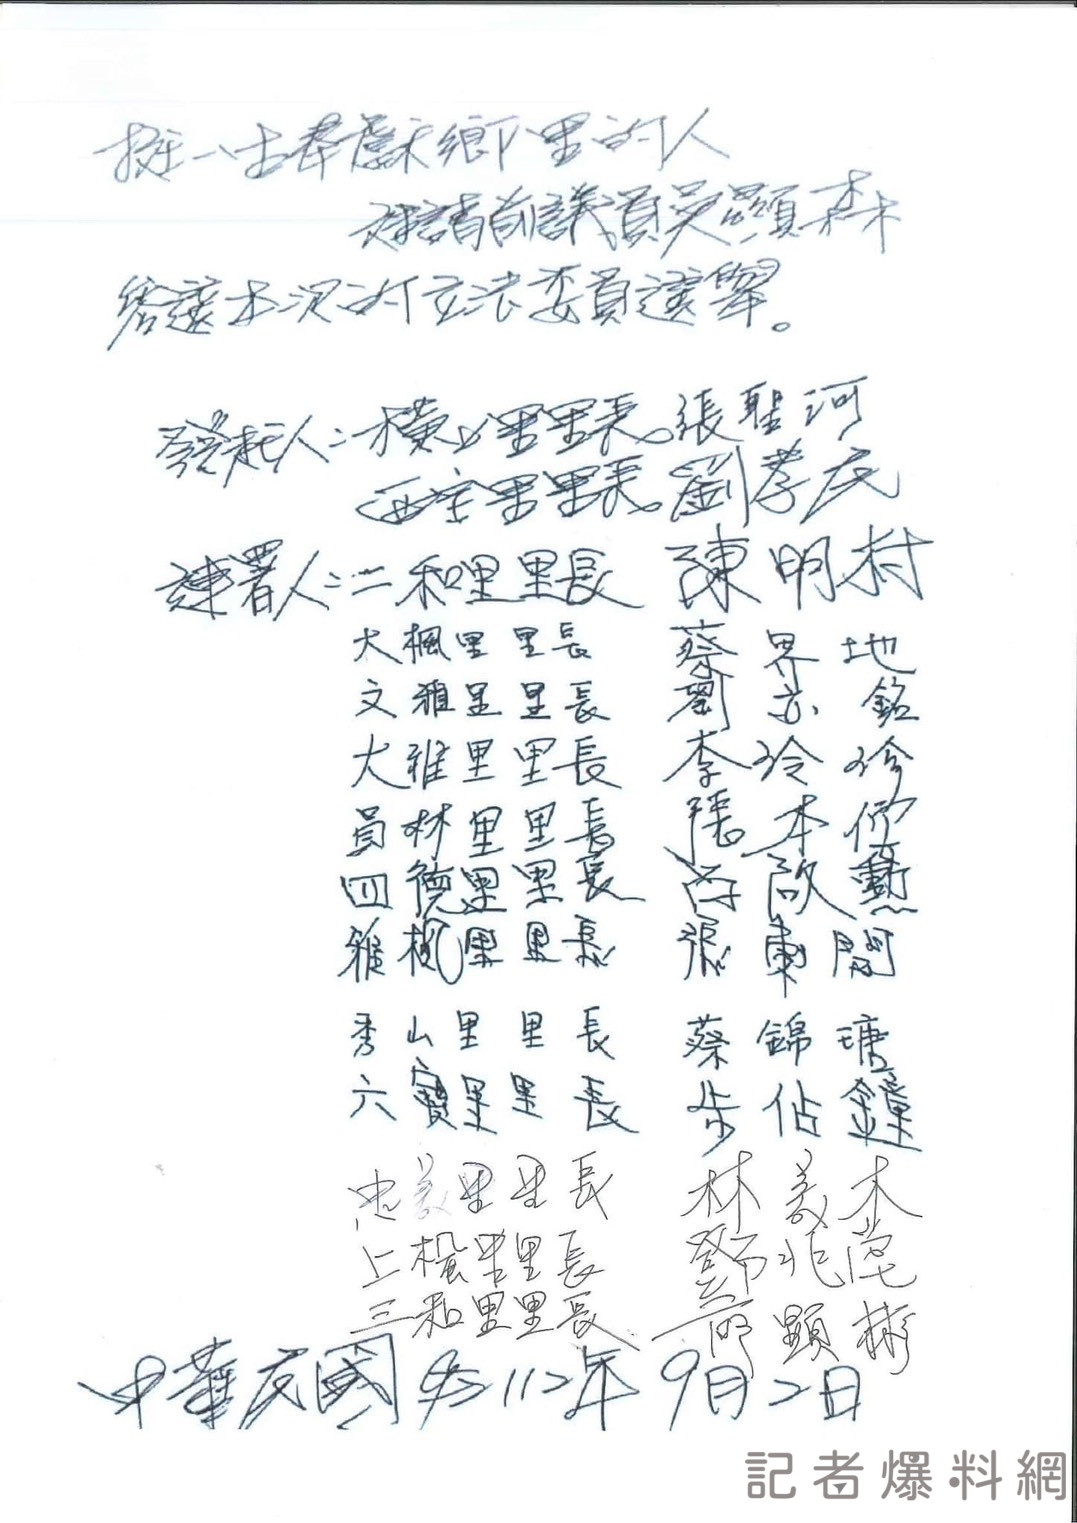 挺一古奉獻鄉里的人
請前議員吳顯森
參選本次的立法委員選舉。
發起人：橫山里里長。張聖河
西寶里里長。劉孝文
連署人：二和里里長 陳明村
大楓里里長 蔡界地
文雅里里長 劉亦銘
大雅里里長 李玲珍
員林里里長 張本
四德里里長 啟勳
雅楓里里長 張東閔
秀山里里長 蔡錦瑭
六寶里里長 佔鐘
忠義里里長 林義木
上楓里里長 鄧兆堂
三和里里長 顯彬
中華民國 112年 9月2日
記者爆料網